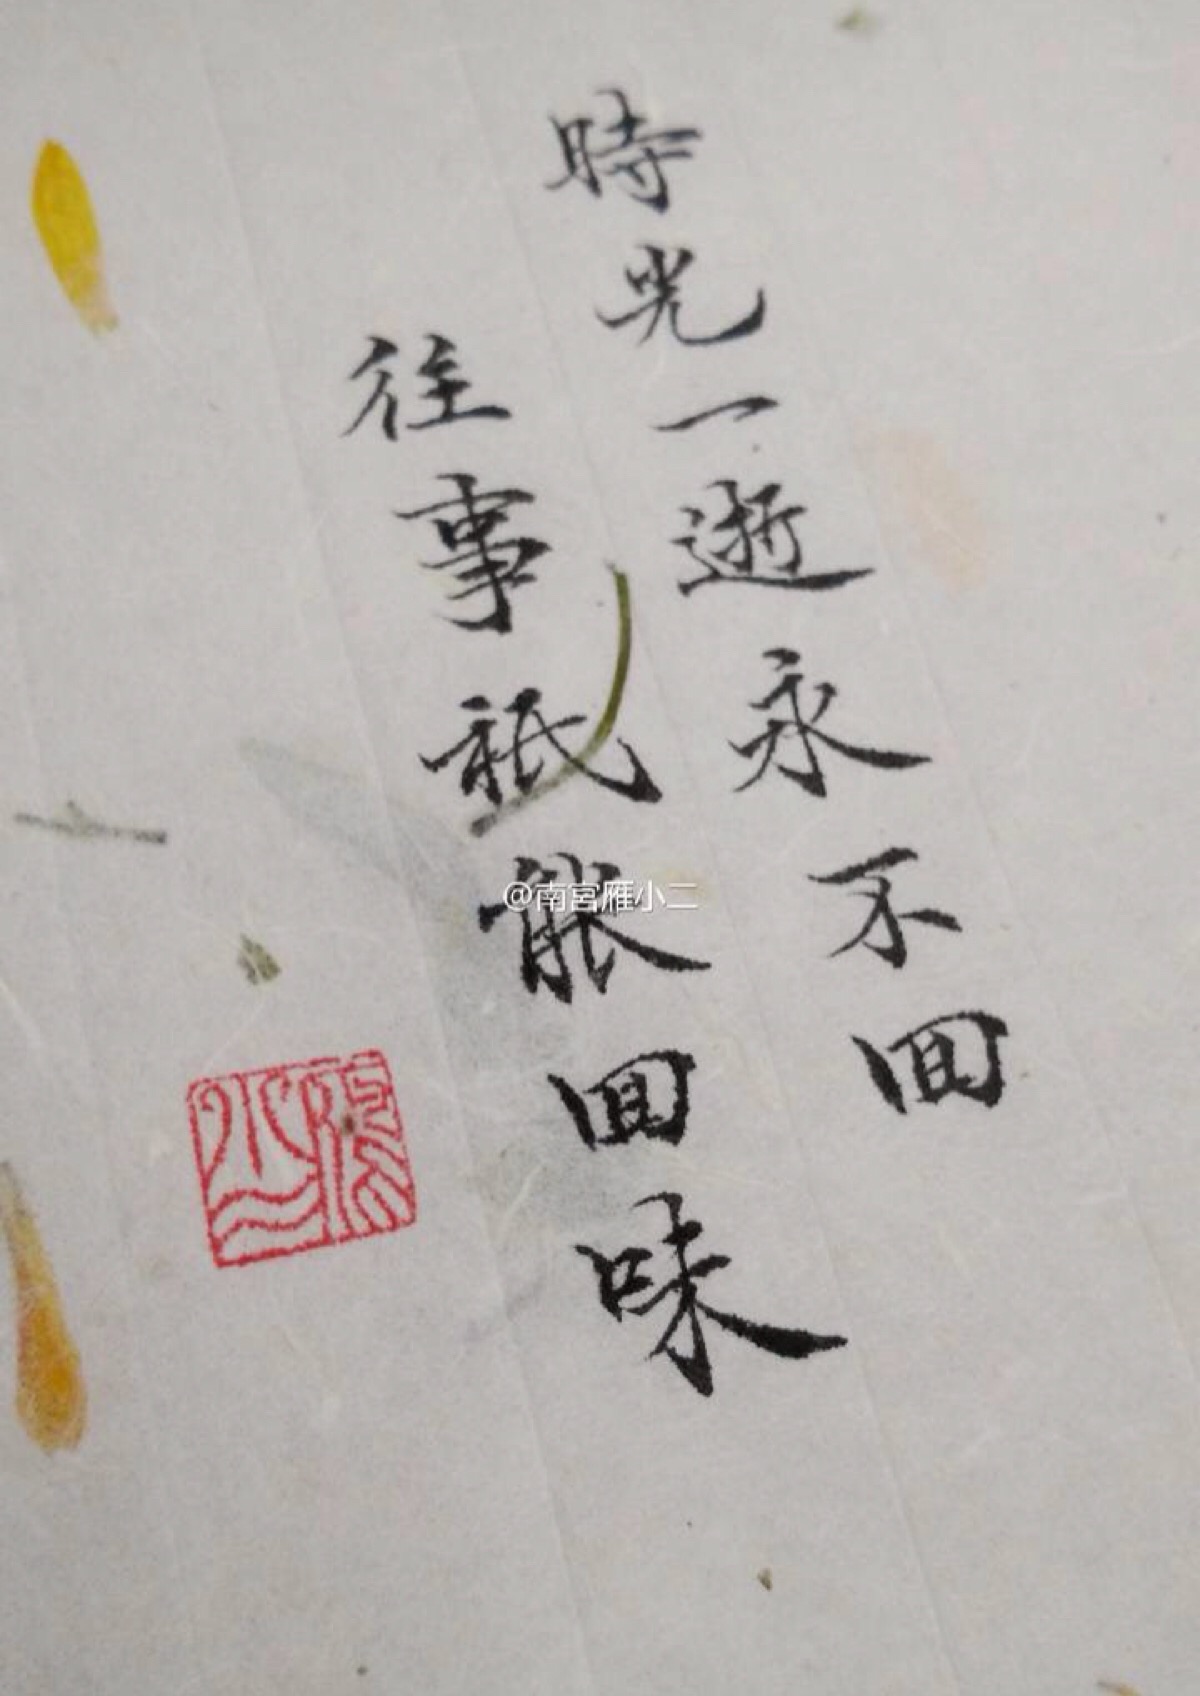 時光一逝永不回
往事祇能回味
@南宮雁小二